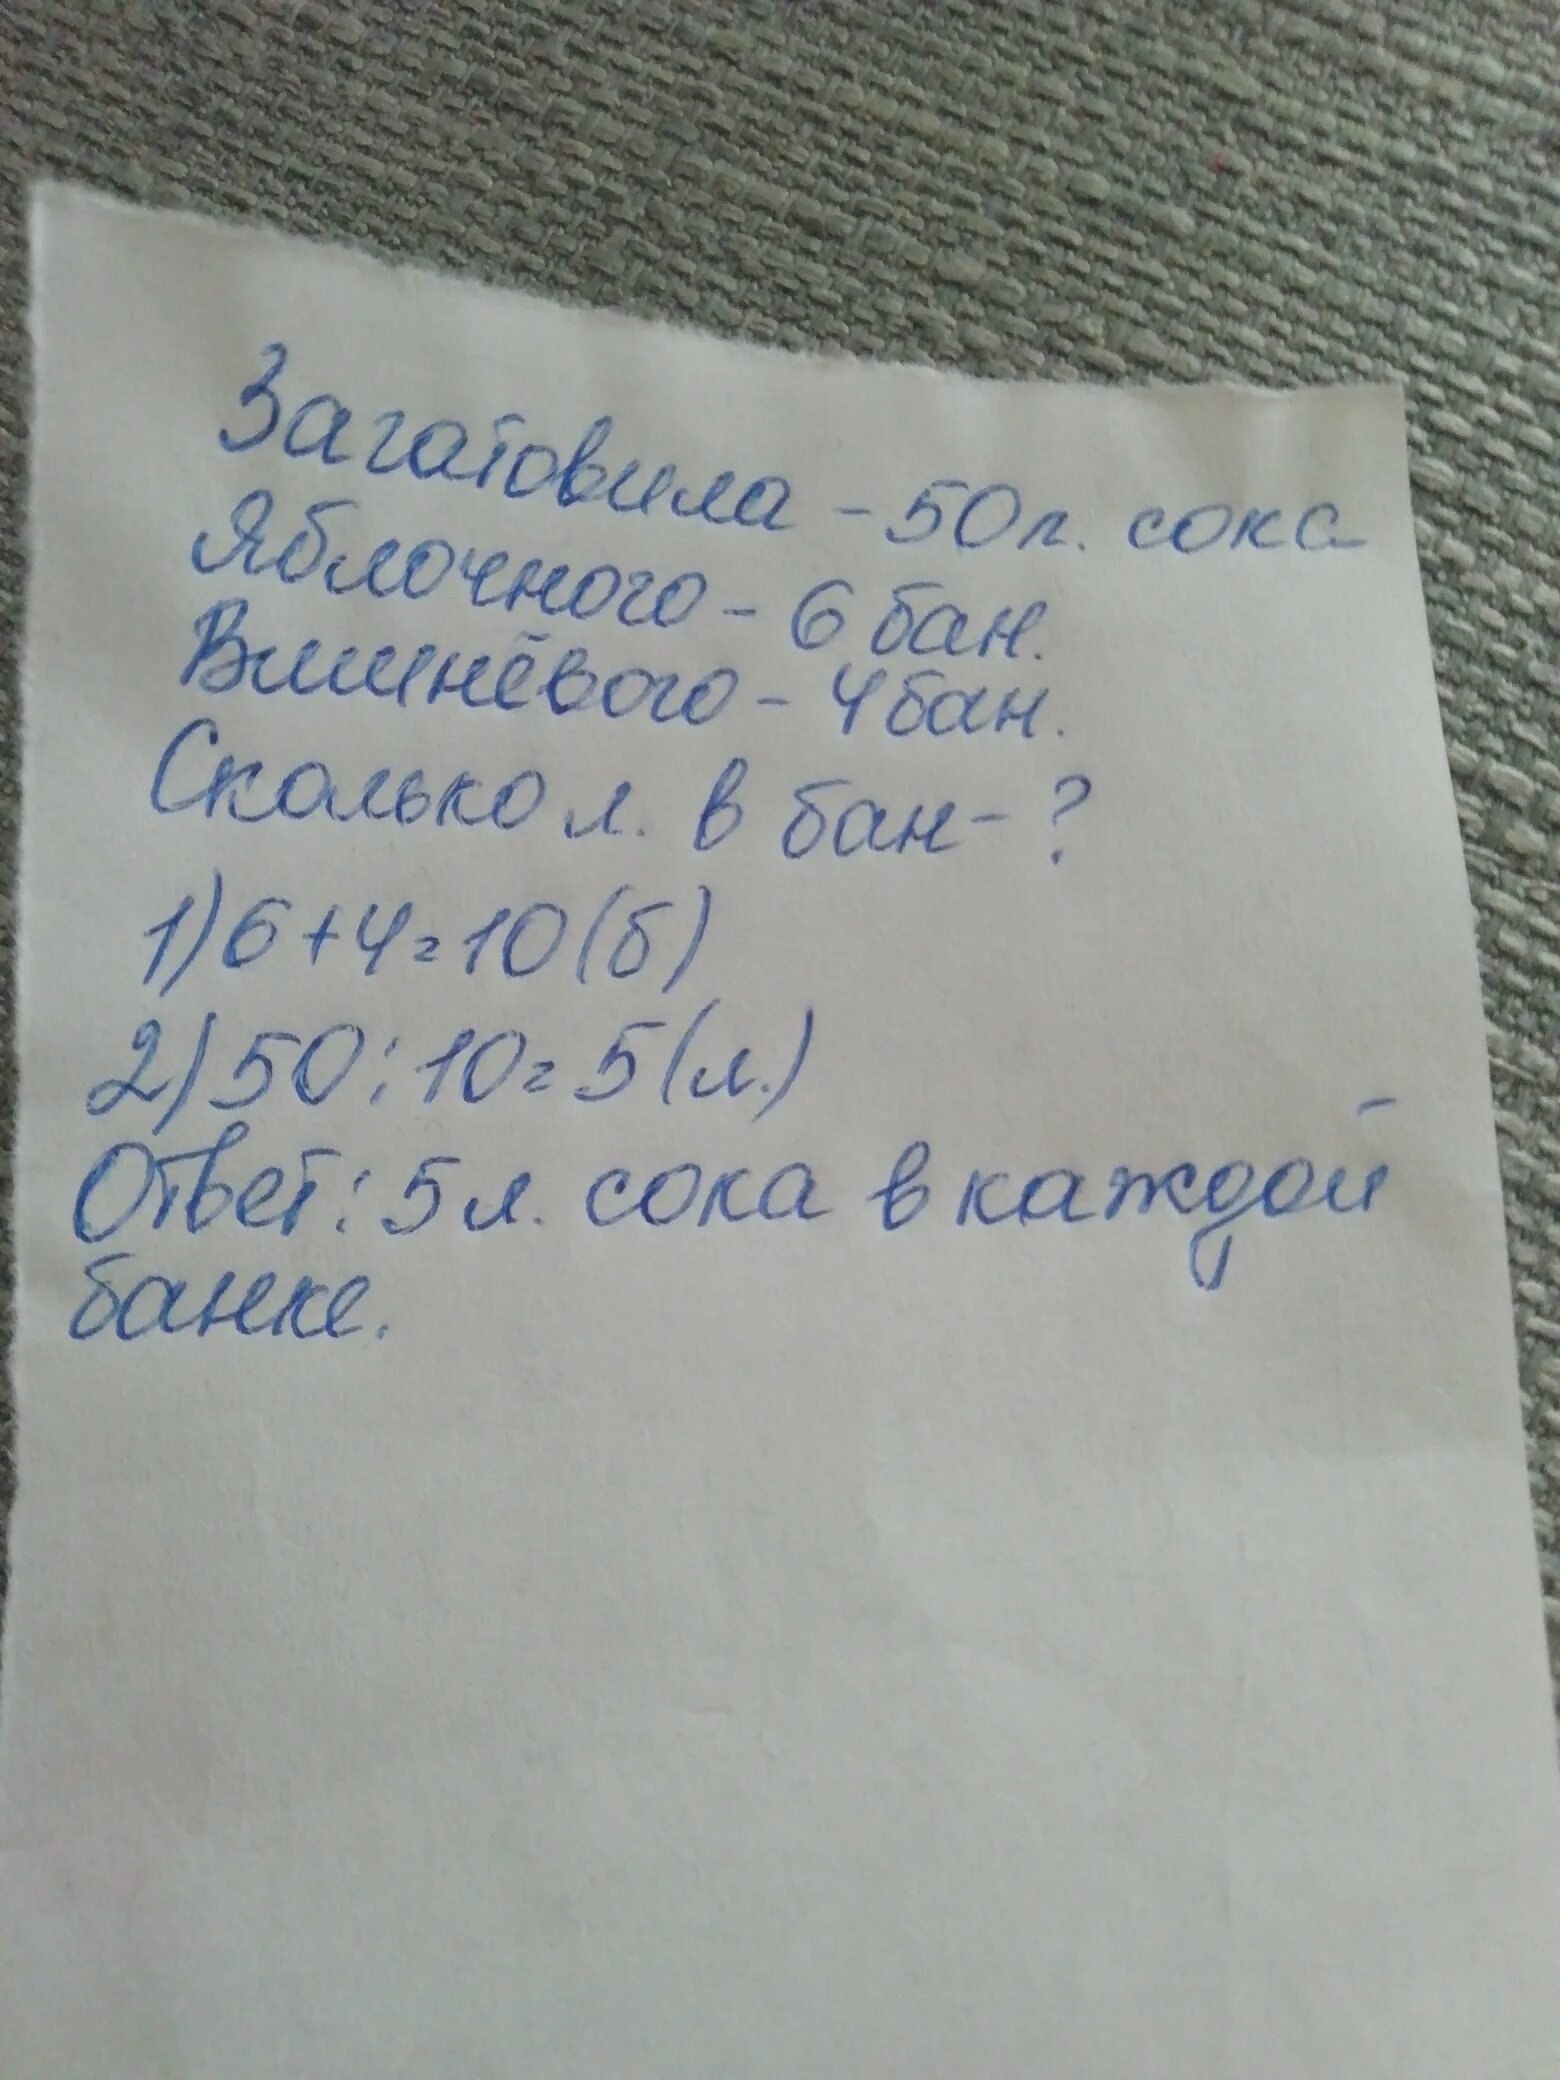 Загатовила - 50 л. сока
Яблочного - 6 бан.
Вишнёвого - 4 бан.
Сколько л. в бан - ?
1) 6 + 4 = 10 (б)
2) 50 : 10 = 5 (л.)
Ответ: 5 л. сока в каждой
банке.